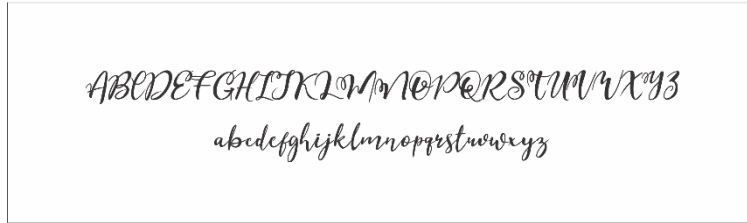 ABCDEFGHIJKLMNOPQRSTUVWXYZ
abcdefghijklmnopqrstuvwxyz